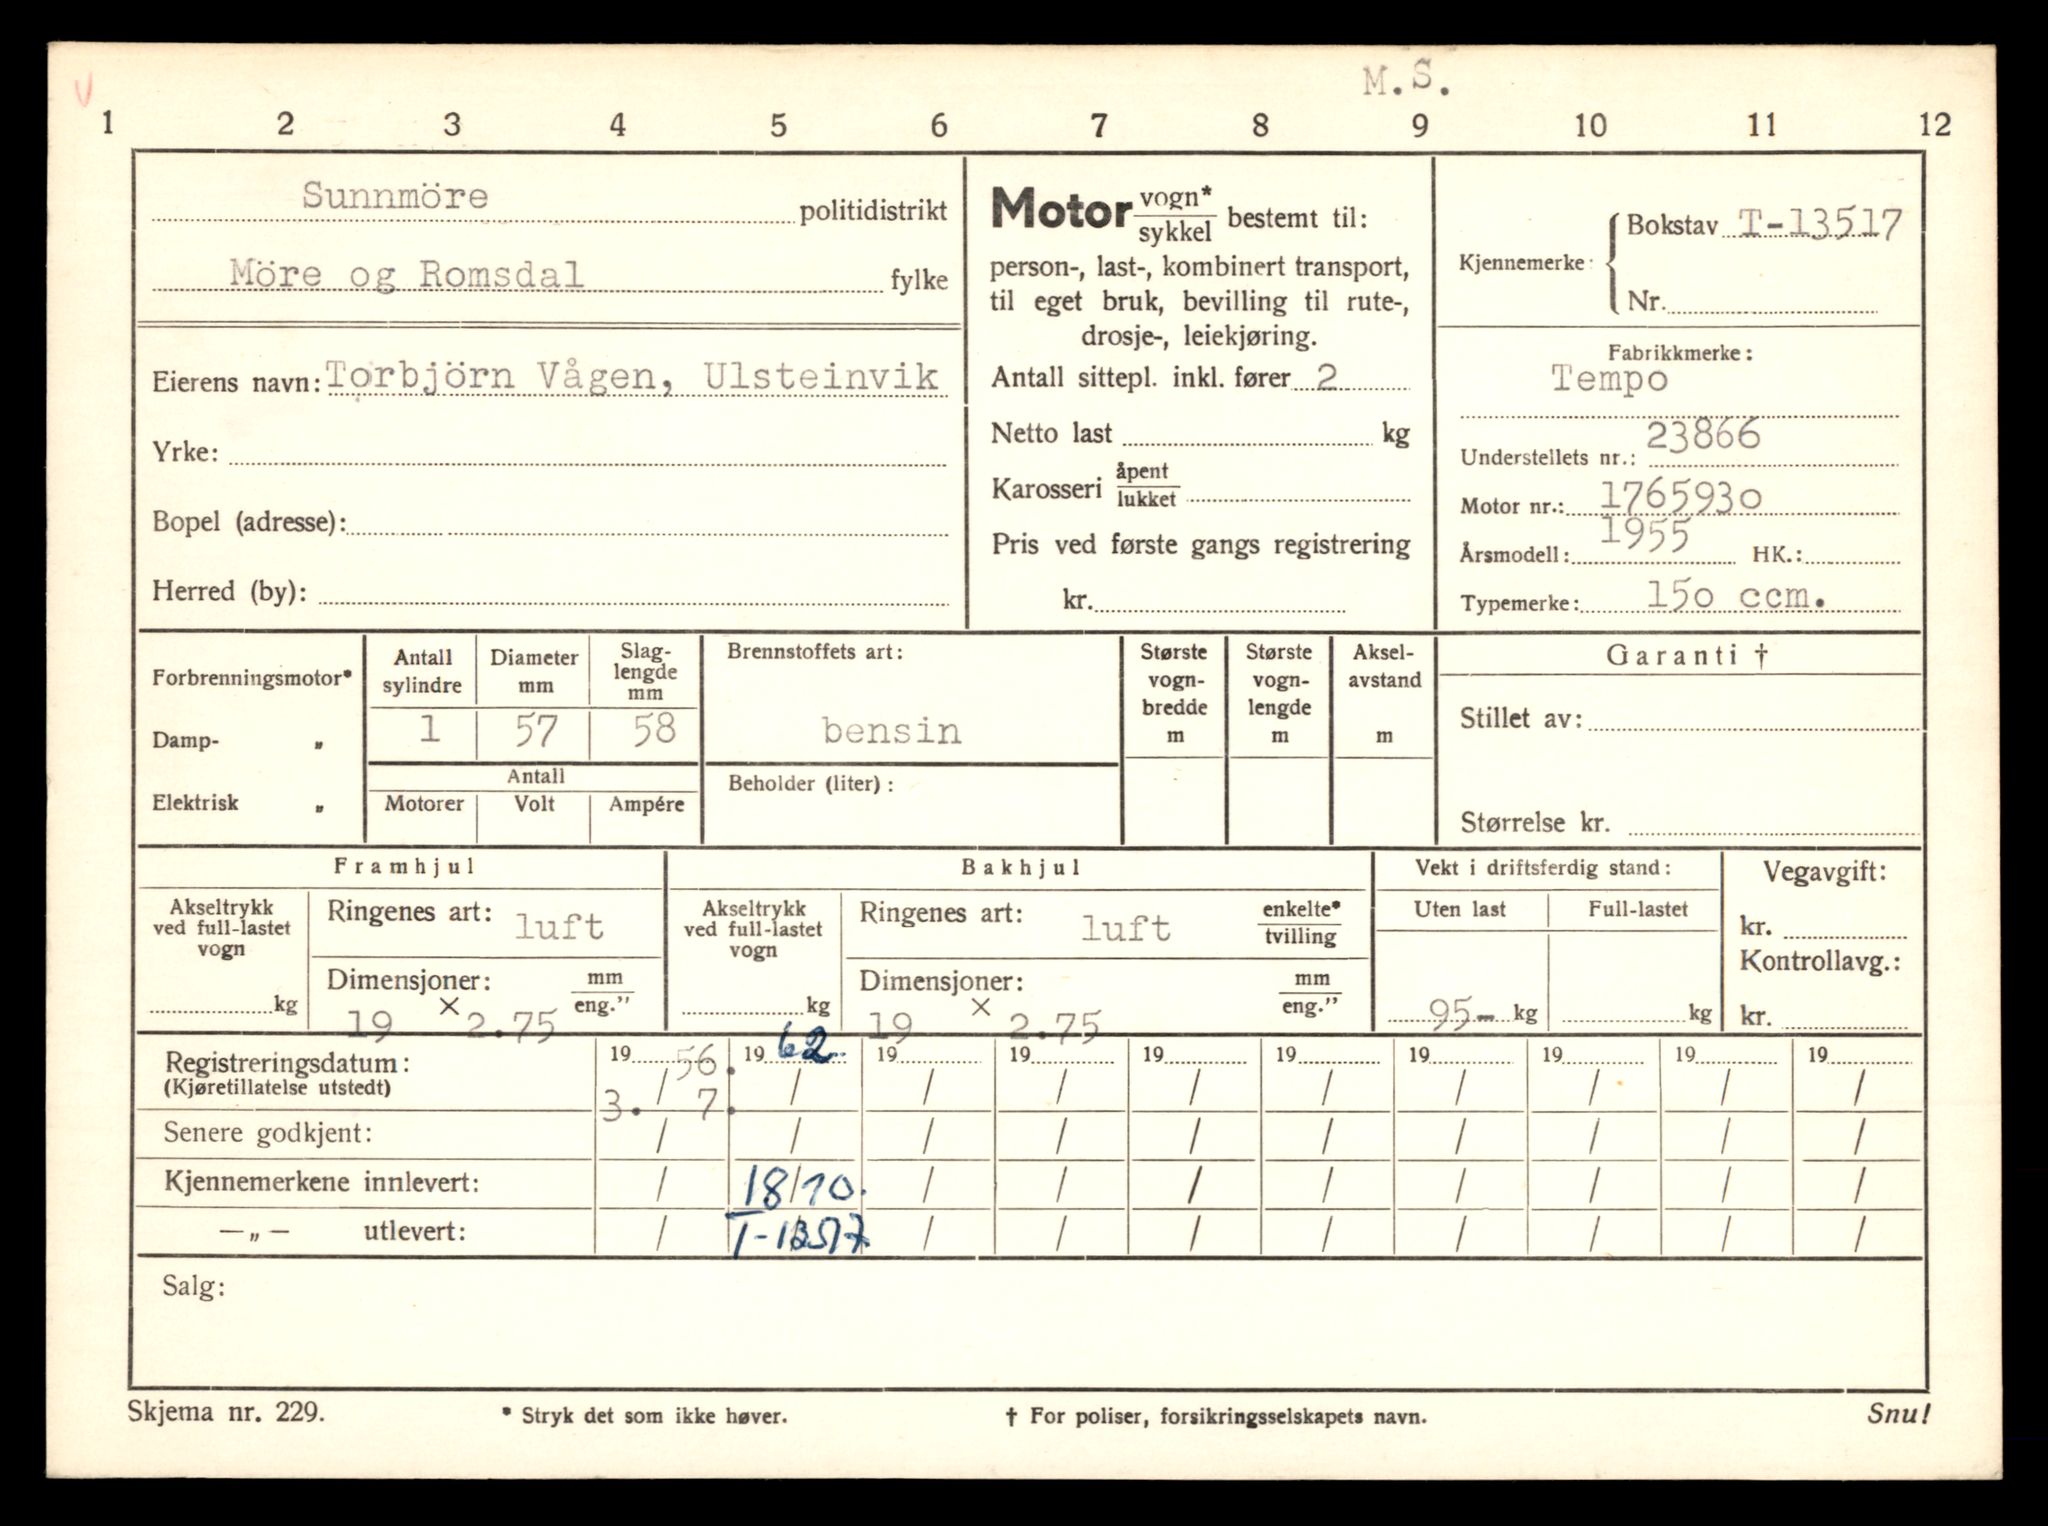 M.S.
1 2 3 4 5 6 7 8 9 10 11 12
Sunnmöre politidistrikt
Möre og Romsdal fylke
Eierens navn: Torbjörn Vågen, Ulsteinvik
Yrke:
Bopel (adresse):
Herred (by):
Motor vogn* / sykkel bestemt til:
person-, last-, kombinert transport,
til eget bruk, bevilling til rute-,
drosje-, leiekjøring.
Antall sittepl. inkl. fører 2
Netto last kg
Karosseri åpent / lukket
Pris ved første gangs registrering
kr.
Kjennemerke: Bokstav T-13517
Nr.
Fabrikkmerke:
Tempo
Understellets nr.: 23866
Motor nr.: 1765930
Årsmodell: 1955 HK.:
Typemerke: 150 ccm.
Forbrenningsmotor*
Damp- „
Elektrisk „
Antall sylindre
1
Diameter mm
57
Slag-lengde mm
58
Antall
Motorer Volt Ampére
Brennstoffets art:
bensin
Beholder (liter):
Største vogn-bredde m
Største vogn-lengde m
Aksel-avstand m
Garanti †
Stillet av:
Størrelse kr.
Framhjul
Akseltrykk ved full-lastet vogn
kg
Ringenes art: luft
Dimensjoner: mm / eng.”
19 × 2.75
Bakhjul
Akseltrykk ved full-lastet vogn
kg
Ringenes art: luft enkelte* / tvilling
Dimensjoner: mm / eng.”
19 × 2.75
Vekt i driftsferdig stand:
Uten last Full-lastet
95- kg kg
Vegavgift:
kr.
Kontrollavg.:
kr.
Registreringsdatum: 19 56. 19 62. 19 19 19 19 19 19 19 19
(Kjøretillatelse utstedt) 3. / 7. / / / / / / / / /
Senere godkjent: / / / / / / / / / /
Kjennemerkene innlevert: / 18/10. / / / / / / / /
—„— utlevert: / T-13517 / / / / / / / /
Salg:
Skjema nr. 229. * Stryk det som ikke høver. † For poliser, forsikringsselskapets navn. Snu!